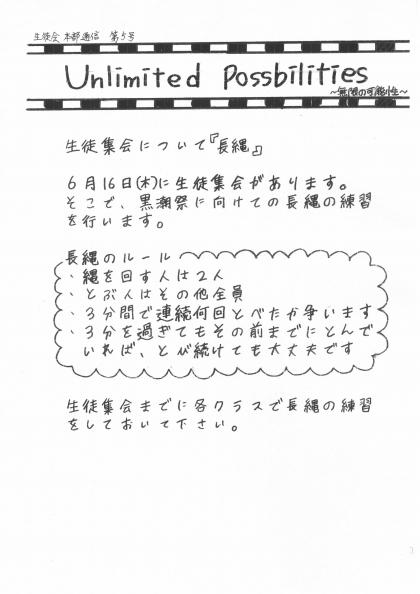 生徒会 本部通信 第5号
Unlimited Possbilities
～無限の可能性～
生徒集会について『長縄』
6月16日(木)に生徒集会があります。
そこで、黒瀬祭に向けての長縄の練習
を行います。
長縄のルール
・縄を回す人は2人
・とぶ人はその他全員
・3分間で連続何回とべたか争います
・3分を過ぎてもその前までにとんで
いれば、とび続けても大丈夫です
生徒集会までに各クラスで長縄の練習
をしておいて下さい。